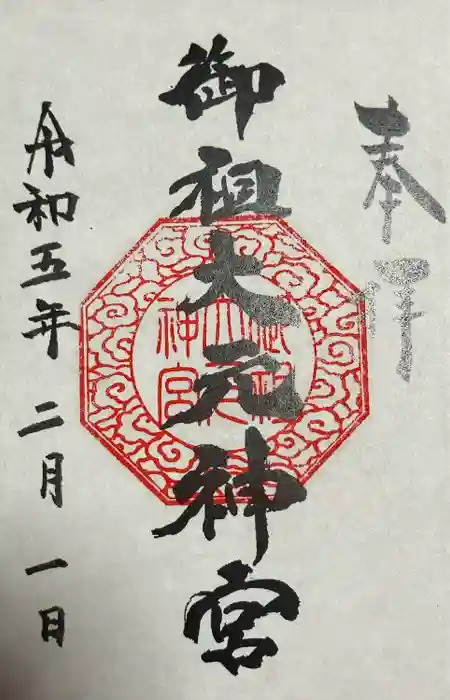 奉拝
御祖大元神宮
令和五年 二月 一日